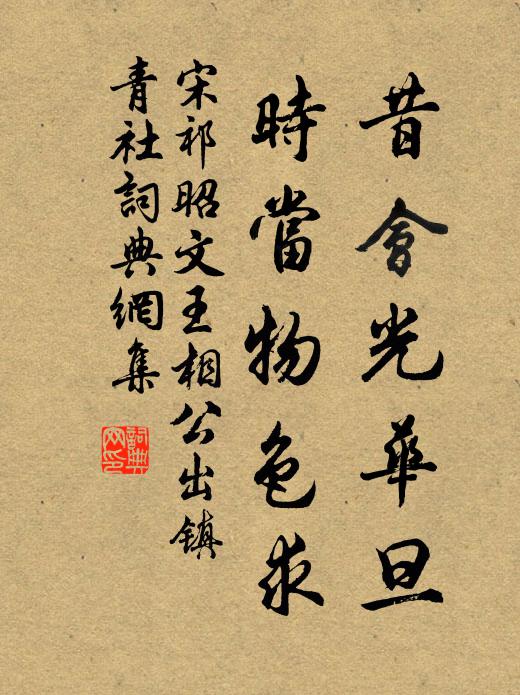 昔會光華旦
時當物色求
宋祁昭文王相公出鎮
青社詞典網集
詞典
网印